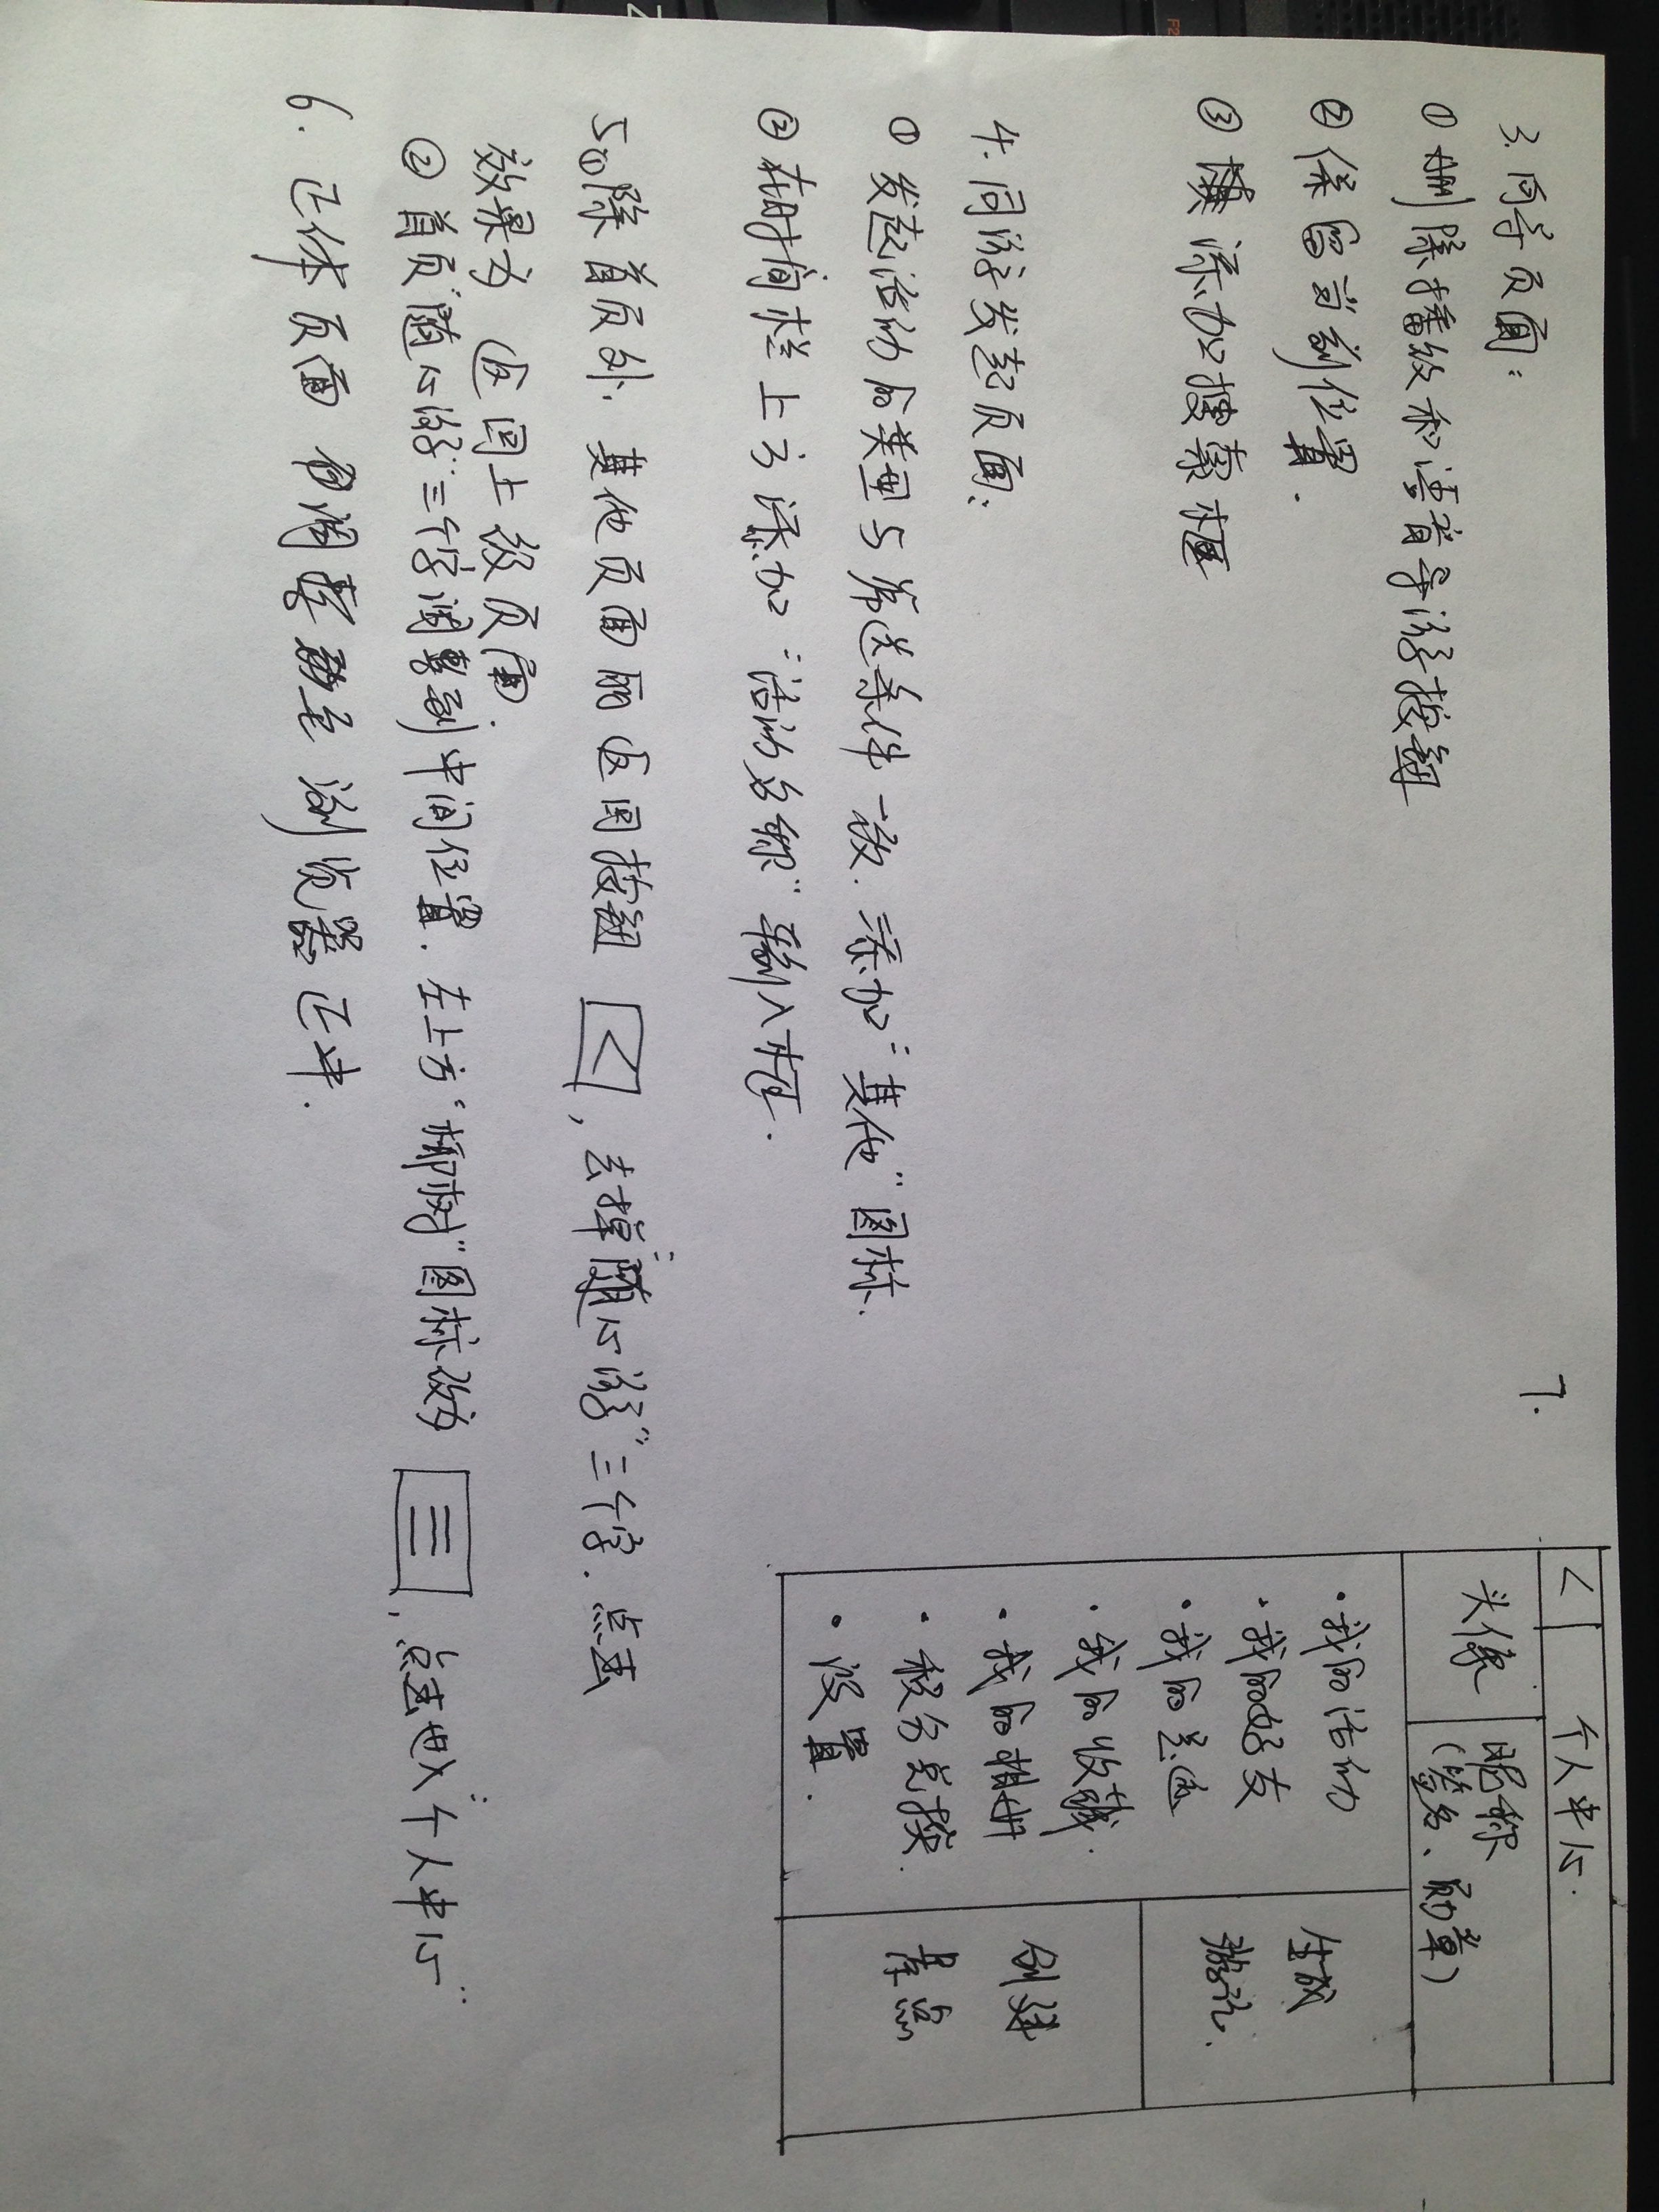 3. 向导页面:
① 删除播放和语音导游按钮
② 保留当前位置.
③ 添加搜索框
4. 同游发起页面:
① 发起活动的类型与筛选条件一致. 添加“其他”图标.
② 在时间栏上方添加“活动名称”输入框.
5. ① 除首页外, 其他页面的返回按钮 <, 去掉“随心游”三个字. 点击
效果为 返回上级页面.
② 首页“随心游”三个字调整到中间位置. 左上方“柳树”图标改为 三, 点击进入“个人中心”
6. 正体页面 自调整至 浏览器正中.
7.
< 个人中心.
头像 昵称
(签名、勋章)
· 我的活动
· 我的好友
· 我的足迹
· 我的收藏.
· 我的相册
· 积分兑换.
· 设置.
生成
游记.
创建
景点